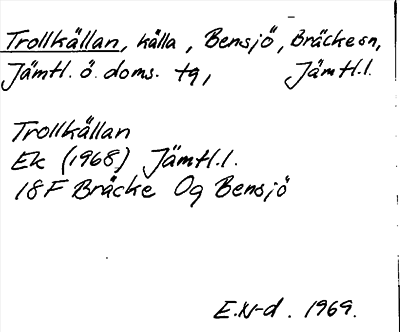 Trollkällan, källa, Bensjö, Bräcke sn,
Jämtl. ö. doms. tg, Jämtl.l.
Trollkällan
Ek (1968) Jämtl.l.
18F Bräcke Og Bensjö
E.N-d. 1969.